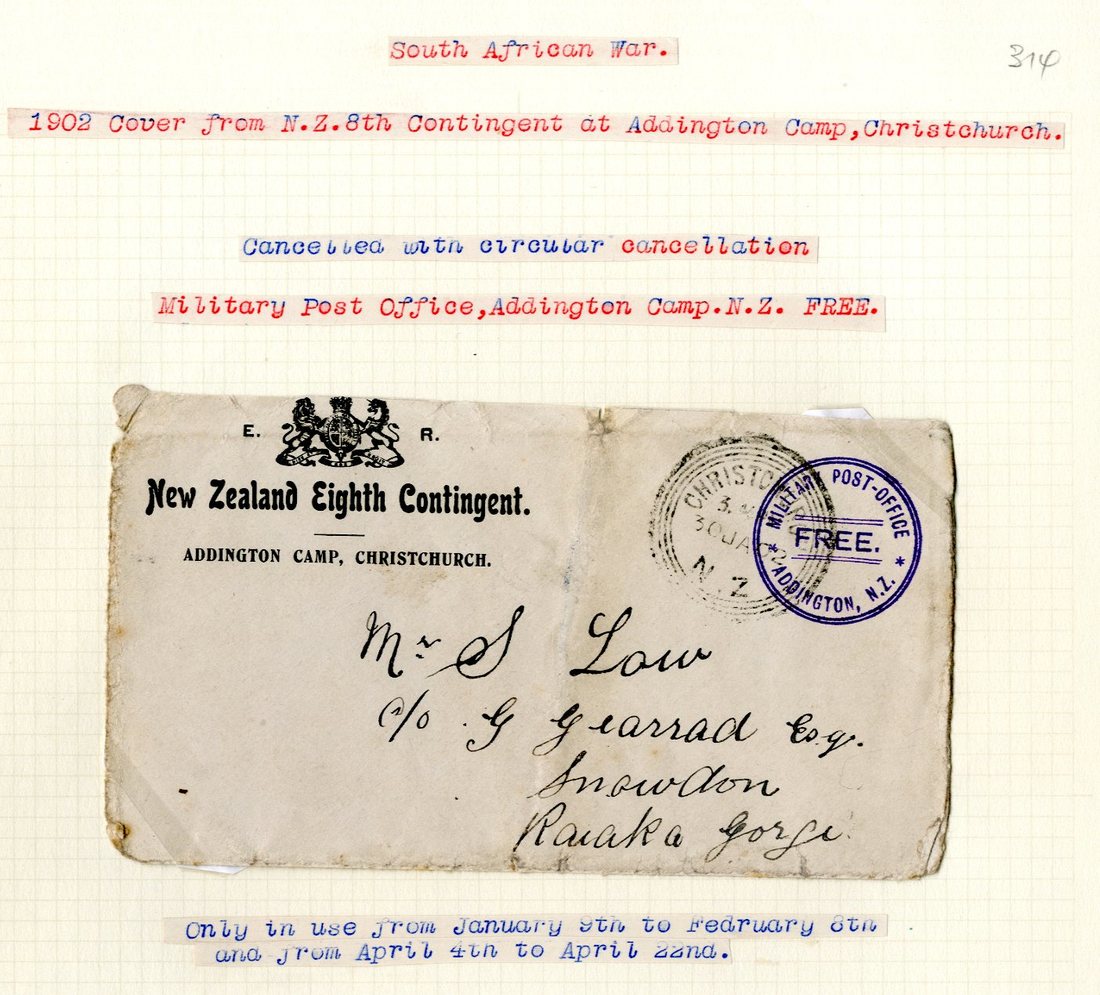 South African War.
314
1902 Cover from N.Z.8th Contingent at Addington Camp,Christchurch.
Cancelled with circular cancellation
Military Post Office,Addington Camp.N.Z. FREE.
E. R.
New Zealand Eighth Contingent.
ADDINGTON CAMP, CHRISTCHURCH.
30 JA 02
N Z
MILITARY POST-OFFICE
FREE.
* ADDINGTON, N.Z. *
Mr S Low
c/o G Gearrad Esq.
Snowdon
Raiaka Gorge
Only in use from January 9th to Fedruary 8th
and from April 4th to April 22nd.